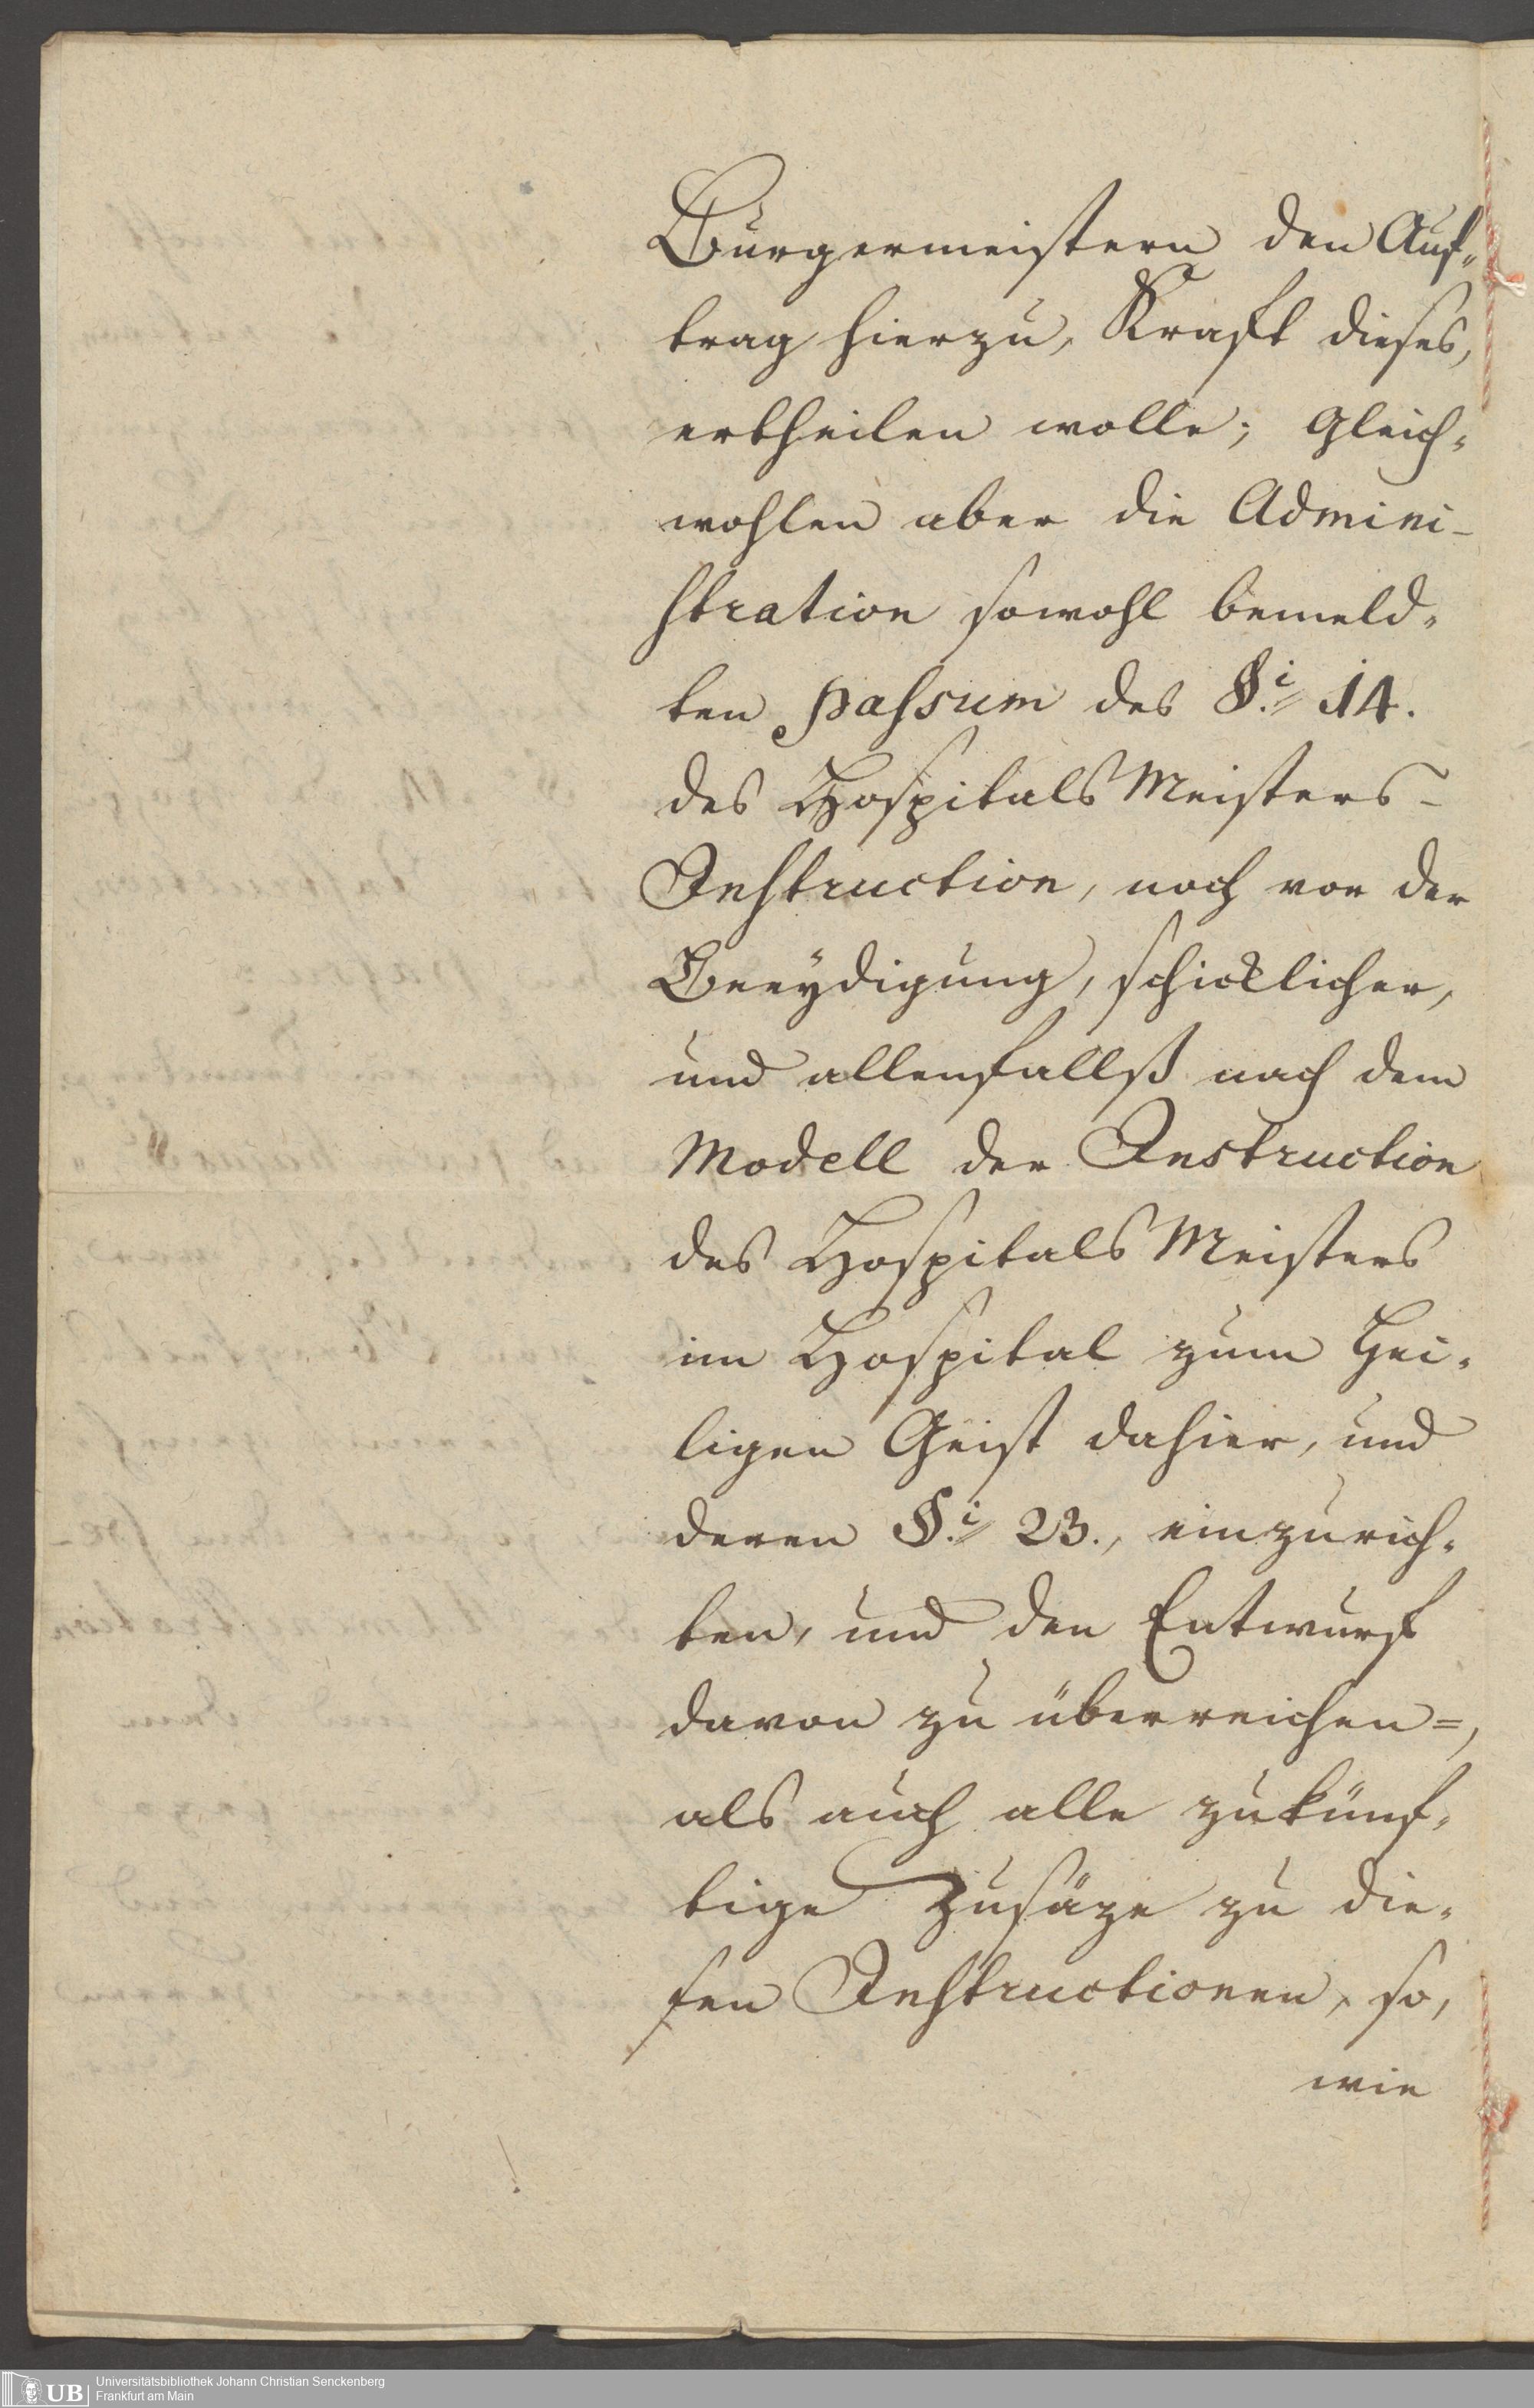 Burgermeistern den Auf„
trag hierzu, Krafft dieses,
ertheilen wolle; gleich„
wohlen aber die Admini-
stration sowohl bemeld„
ten passum des §.i 14.
des Hospitals Meisters-
Instruction, noch vor der
Beeydigung, schicklicher,
und allenfallß nach dem
Modell der Instruction
des Hospitals Meisters
im Hospital zum Hei„
ligen Geist dahier, und
deren §.i 23., einzurich„
ten, und den Entwurf
davon zu überreichen=,
als auch alle zukünf„
tige Zusäze zu die„
sen Instructionen, so,
wie
UB
Universitätsbibliothek Johann Christian Senckenberg
Frankfurt am Main